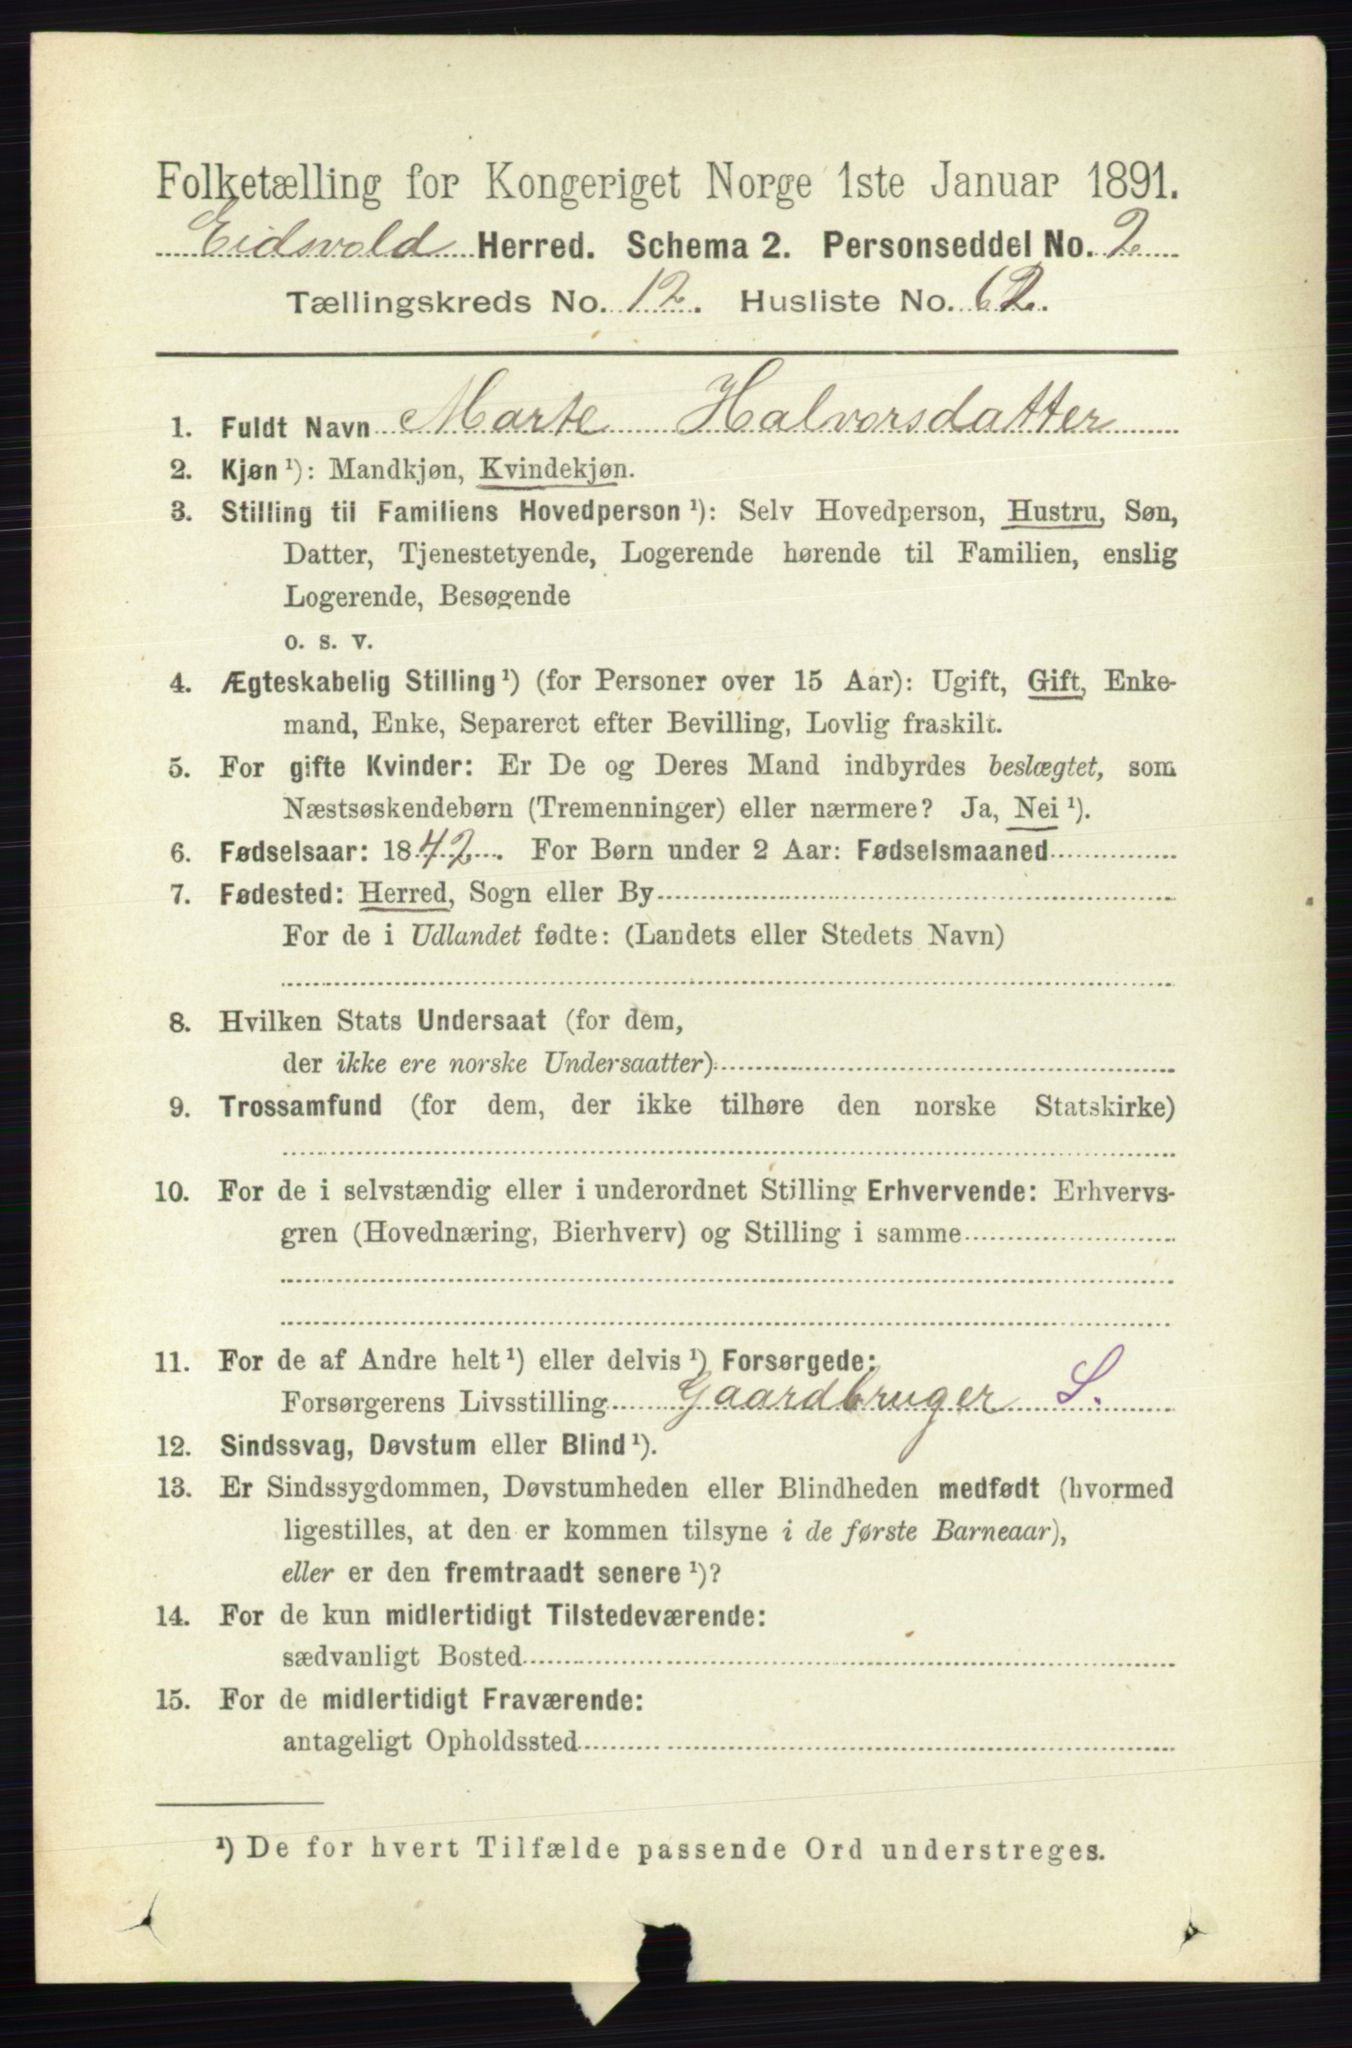 Folketælling for Kongeriget Norge 1ste Januar 1891.
Eidsvold Herred. Schema 2. Personseddel No. 2
Tællingskreds No. 12. Husliste No. 62.
1. Fuldt Navn Marte Halvorsdatter
2. Kjøn ¹): Mandkjøn, Kvindekjøn.
3. Stilling til Familiens Hovedperson ¹): Selv Hovedperson, Hustru, Søn,
Datter, Tjenestetyende, Logerende hørende til Familien, enslig
Logerende, Besøgende
o. s. v.
4. Ægteskabelig Stilling ¹) (for Personer over 15 Aar): Ugift, Gift, Enke-
mand, Enke, Separeret efter Bevilling, Lovlig fraskilt.
5. For gifte Kvinder: Er De og Deres Mand indbyrdes beslægtet, som
Næstsøskendebørn (Tremenninger) eller nærmere? Ja, Nei ¹).
6. Fødselsaar: 1842. For Børn under 2 Aar: Fødselsmaaned
7. Fødested: Herred, Sogn eller By
For de i Udlandet fødte: (Landets eller Stedets Navn)
8. Hvilken Stats Undersaat (for dem,
der ikke ere norske Undersaatter)
9. Trossamfund (for dem, der ikke tilhøre den norske Statskirke)
10. For de i selvstændig eller i underordnet Stilling Erhvervende: Erhvervs-
gren (Hovednæring, Bierhverv) og Stilling i samme
11. For de af Andre helt ¹) eller delvis ¹) Forsørgede:
Forsørgerens Livsstilling Gaardbruger S.
12. Sindssvag, Døvstum eller Blind ¹).
13. Er Sindssygdommen, Døvstumheden eller Blindheden medfødt (hvormed
ligestilles, at den er kommen tilsyne i de første Barneaar),
eller er den fremtraadt senere ¹)?
14. For de kun midlertidigt Tilstedeværende:
sædvanligt Bosted
15. For de midlertidigt Fraværende:
antageligt Opholdssted
¹) De for hvert Tilfælde passende Ord understreges.